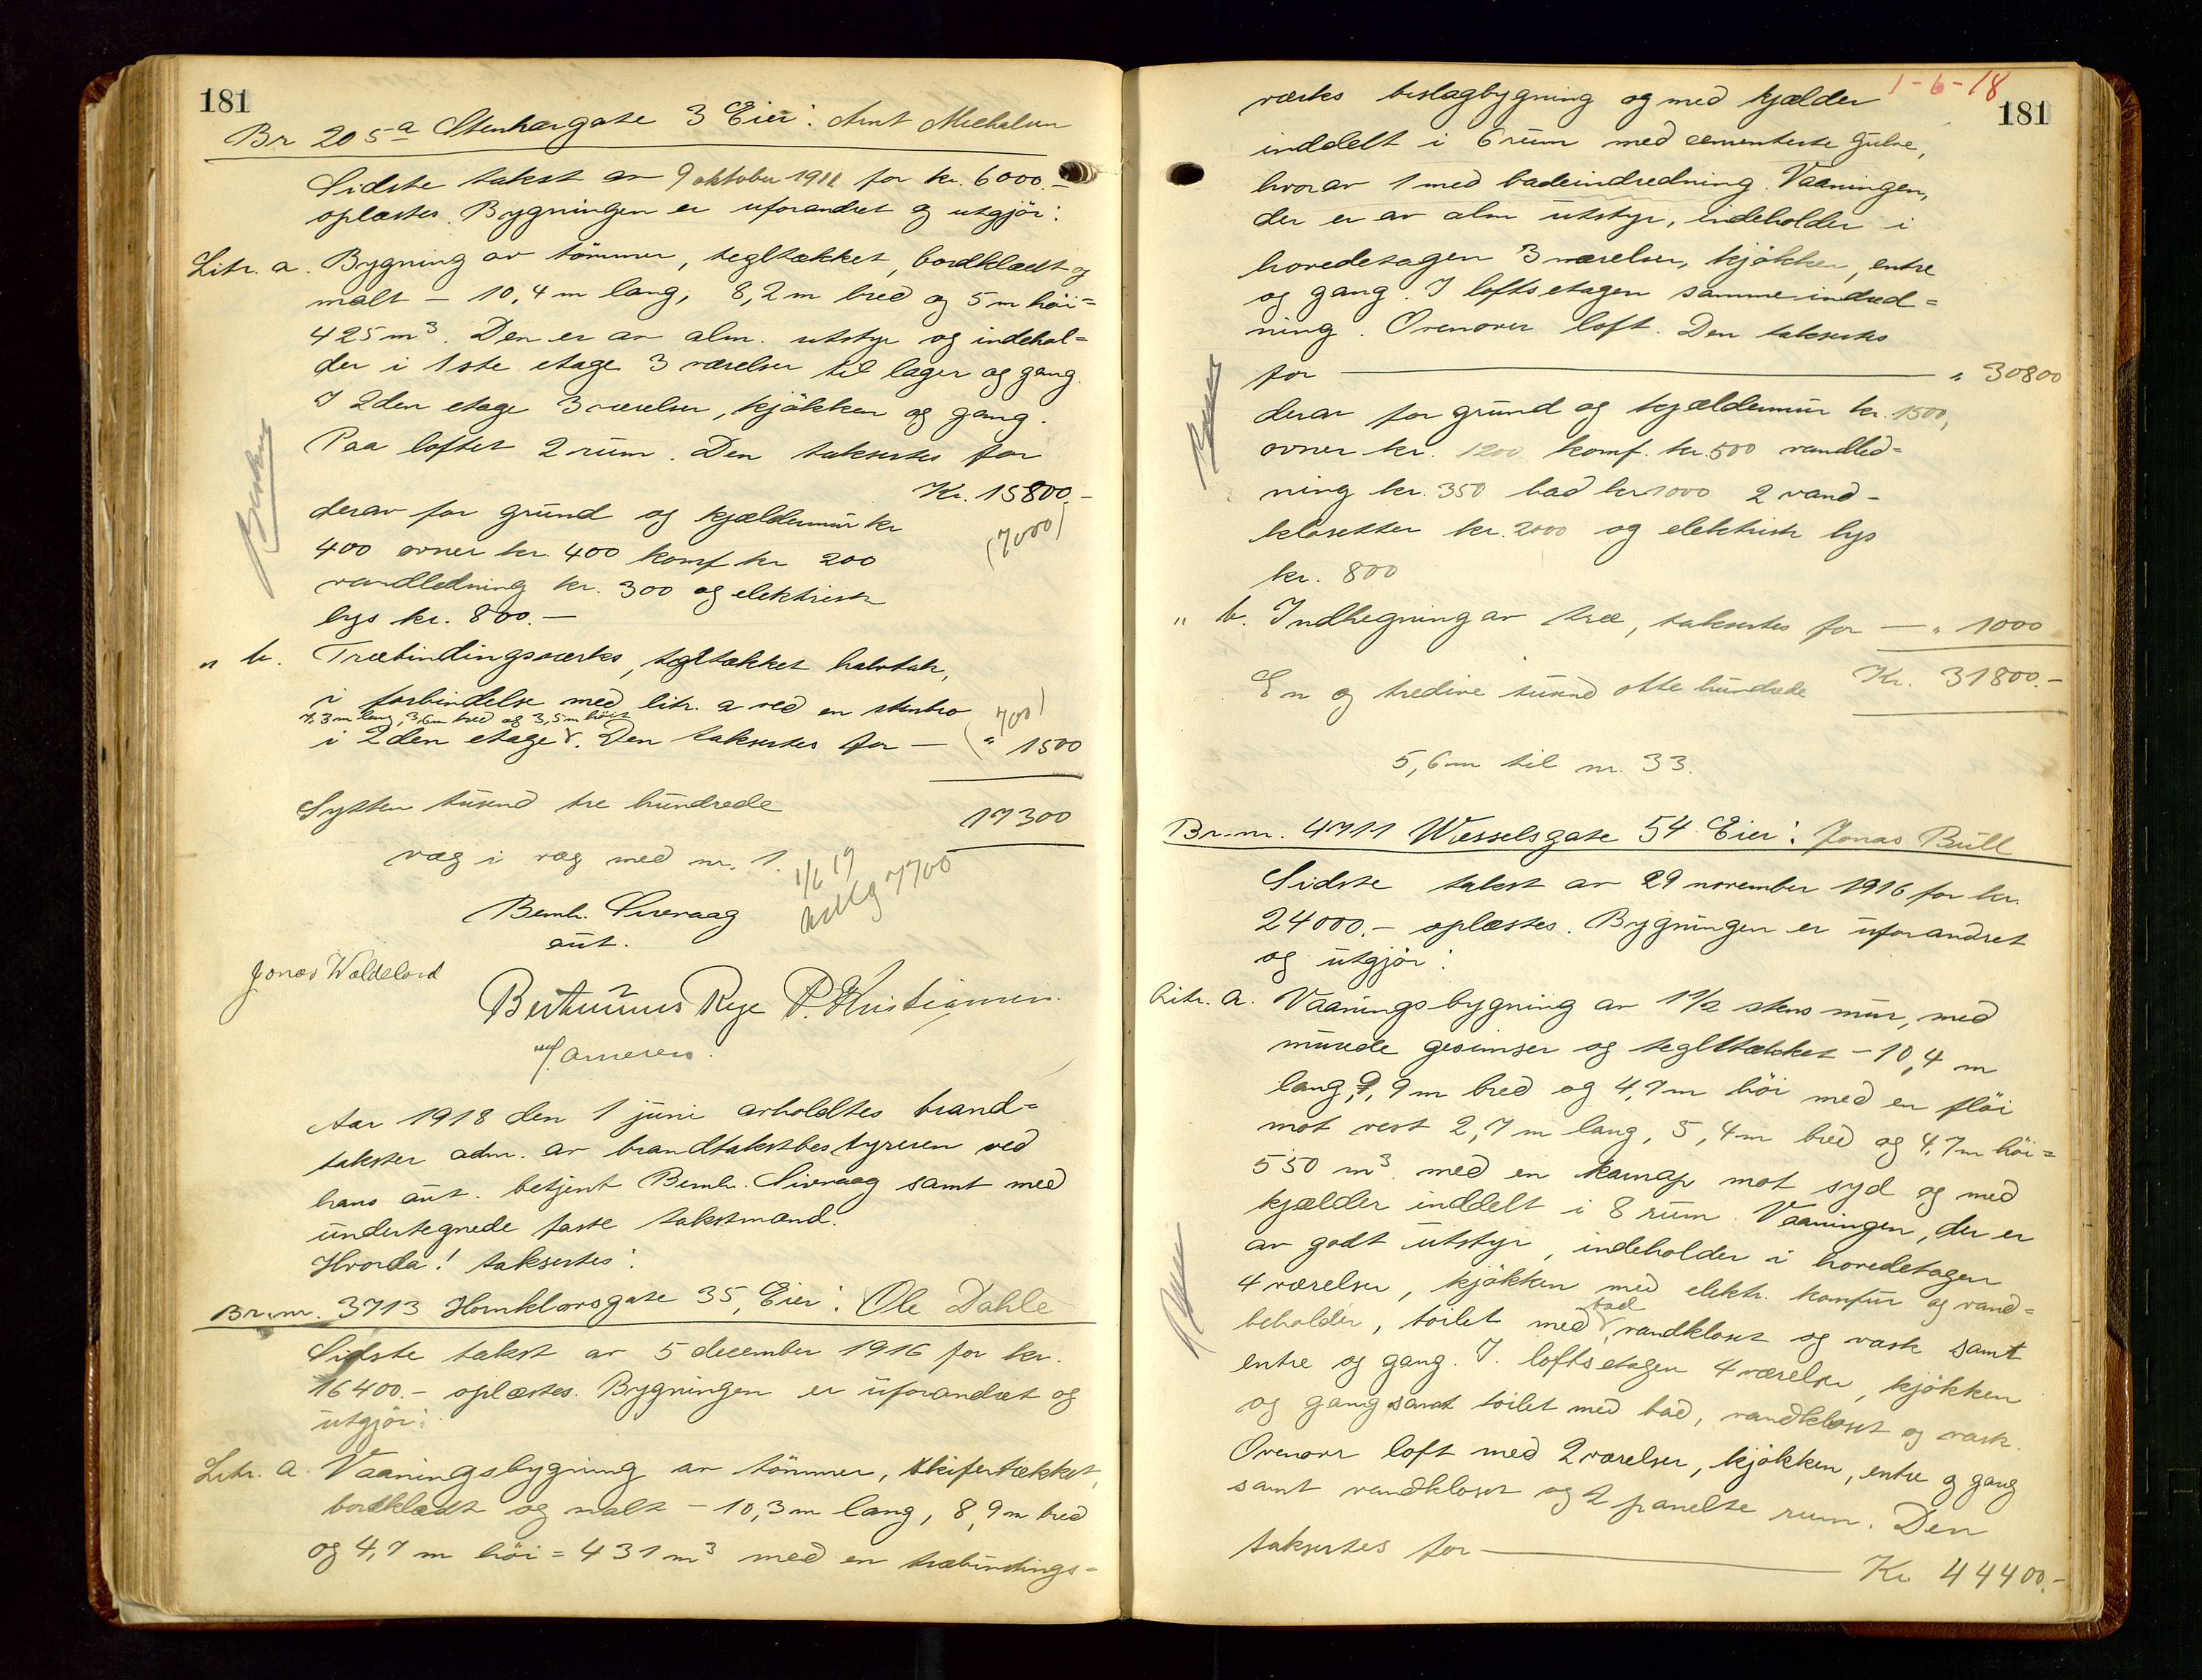 181
Br 205a Stenkargate 3 Eier: Arnt Michelsen
Sidste takst av 9 oktober 1911 for kr. 6000.-
oplæstes. Bygningen er uforandret og utgjör:
Litr. a. Bygning av tömmer, tegltækket, bordklædt og
malt - 10,4 m lang, 8,2 m bred og 5 m höi =
425 m³. Den er av alm. utstyr og indehol=
der i 1ste etage 3 værelser til lager og gang.
I 2den etage 3 værelser, kjökken og gang.
Paa loftet 2 rum. Den taksertes for
Kr. 15800.-
(7000)
derav for grund og kjældermur kr
400 ovner kr. 400 komf kr 200
vandledning kr. 300 og elektrisk
lys kr. 800.-
" b. Træbindingsverks, tegltækket halvtak,
i forbindelse med litr. a ved en stenbro
7,3 m lang, 3,6 m bred og 3,5 m höit
i 2den etage. Den taksertes for — " 1500
(700)
Sytten tusend tre hundrede 17300
væg i væg med nr. 1.
1/6 19
7700
Bernh. Siveraag
aut.
Jonas Woldeland
Bertinius Rege P. Kristiansen
Aar 1918 den 1 juni avholdtes brand=
takster adm. av brandtakstbestyreren ved
hans aut. betjent Bernh. Siveraag samt med
undertegnede faste takstmænd.
Hvorda! taksertes:
Br.nr. 3713 Hornklovsgate 35, Eier: Ole Dahle
Sidste takst av 5 december 1916 for kr.
16400.- oplæstes. Bygningen er uforandret og
utgjör:
Litr. a. Vaaningsbygning av tömmer, skifertækket,
bordklædt og malt - 10,3 m lang, 8,9 m bred
og 4,7 m höi = 431 m³ med en træbindings=
1-6-18
181
verks beslagbygning og med kjælder
inddelt i 6 rum med cementerte gulve,
hvorav 1 med badeindredning. Vaaningen,
der er av alm utstyr, indeholder i
hovedetagen 3 værelser, kjökken, entre
og gang. I loftsetagen samme indred=
ning. Ovenover loft. Den taksertes
for — " 30800
derav for grund og kjældermur kr. 1500,
ovner kr. 1200 komf. kr. 500 vandled=
ning kr. 350 bad kr 1000 2 vand-
klosetter kr. 2000 og elektrisk lys
kr. 800
" b. Indhegning av træ, taksertes for — " 1000
En og tredive tusend otte hundrede Kr. 31800.-
5,6 m til nr. 33.
Br.nr. 4711 Wesselsgate 54 Eier: Jonas Bull
Sidste takst av 29 november 1916 for kr.
24000.- oplæstes. Bygningen er uforandret
og utgjör:
Litr. a. Vaaningsbygning av 1 1/2 stens mur, med
murede gesimser og tegltækket - 10,4 m
lang, 9,9 m bred og 4,7 m höi med en flöi
mot vest 2,7 m lang, 5,4 m bred og 4,7 m höi =
550 m³ med en karnap mot syd og med
kjælder inddelt i 8 rum. Vaaningen, der er
av godt utstyr, indeholder i hovedetagen
4 værelser, kjökken med elektr. komfur og vand=
bad
beholder, toilet med vandkloset og vask samt
entre og gang. I. loftsetagen 4 værelser, kjökken
og gang samt toilet med bad, vandkloset og vask.
Ovenover loft med 2 værelser, kjökken, entre og gang
samt vandkloset og 2 panelte rum. Den
taksertes for — Kr 44400.-